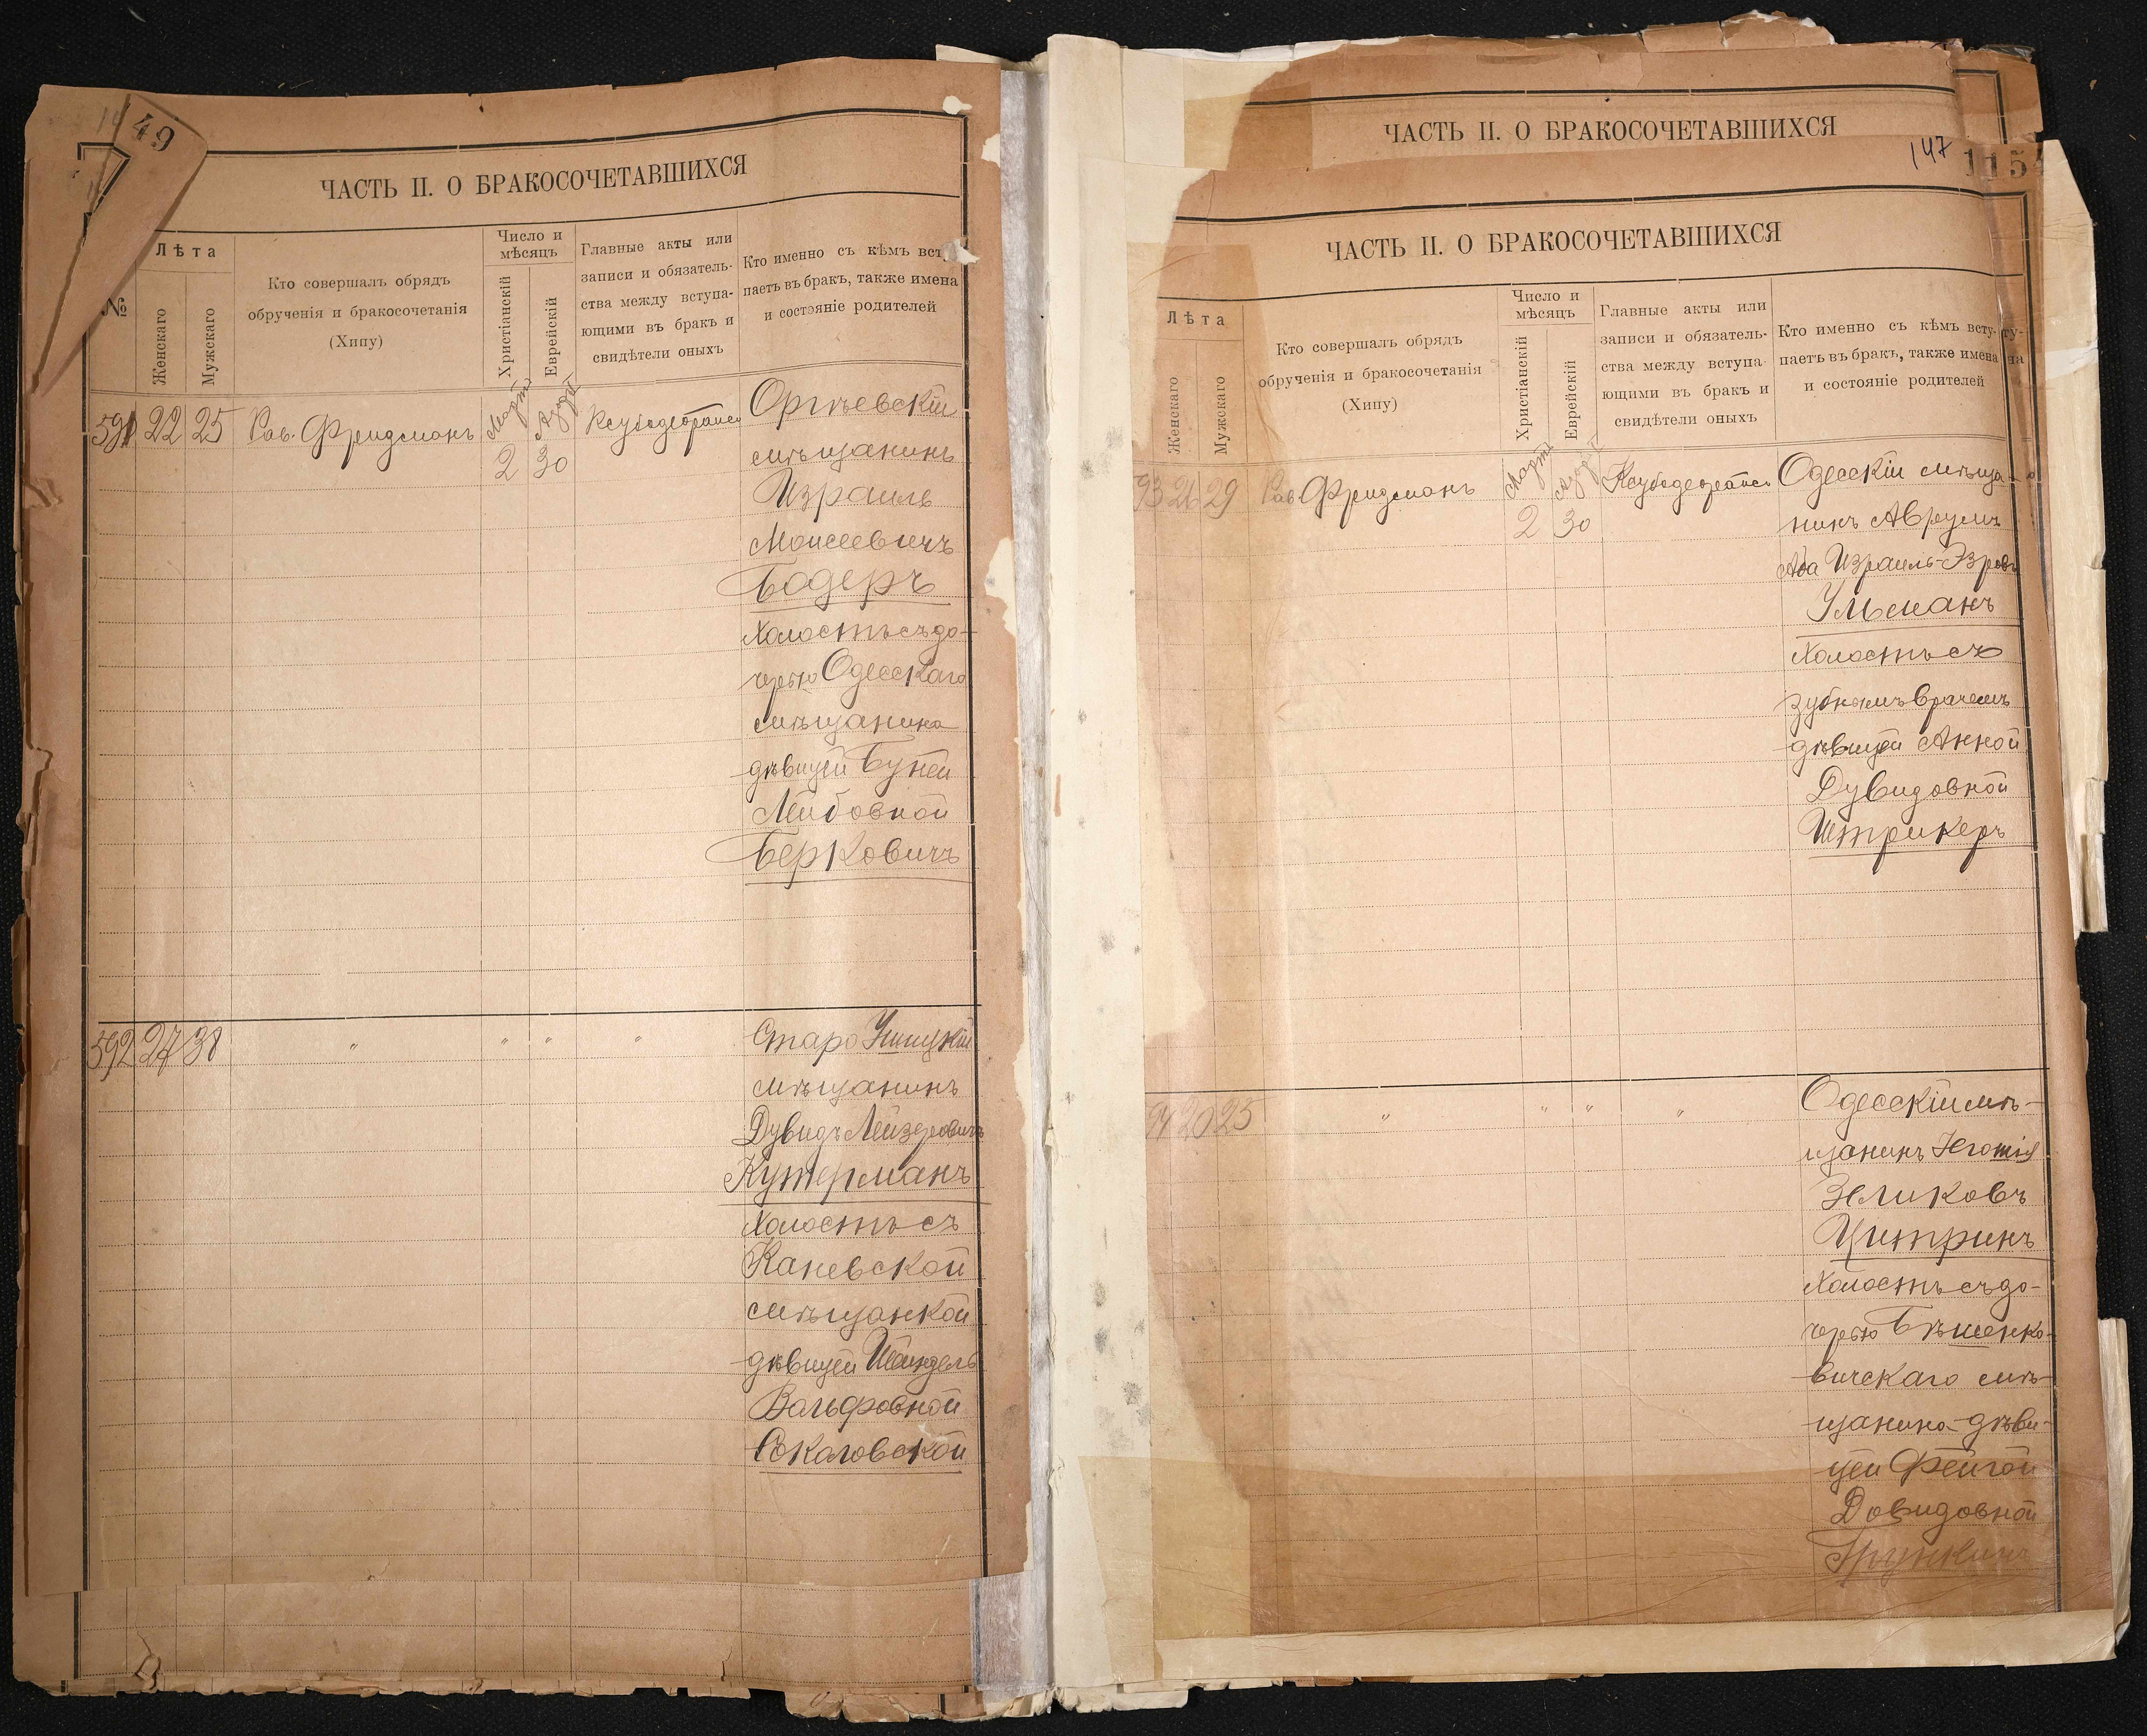 49
ЧАСТЬ II. О БРАКОСОЧЕТАВШИХСЯ
№
Лѣта
Женскаго
Мужскаго
Кто совершалъ обрядъ
обрученія и бракосочетанія
(Хипу)
Число и
мѣсяцъ
Христіанскій
Еврейскій
Главные акты или
записи и обязатель-
ства между вступа-
ющими въ бракъ и
свидѣтели оныхъ
Кто именно съ кѣмъ всту
паетъ въ бракъ, также имена
и состояніе родителей
591 22 25 Рав. Фридманъ Мартъ 2 Адаръ 30 Оргѣевскій
мѣщанинъ
Израиль
Моисеевичъ
Бадеръ
холостъ съ до-
черью Одесскаго
мѣщанина
дѣвицей Буней
Лейбовной
Берковичъ
592 27 38 " " " " Старо Ушицкій
мѣщанинъ
Дувидъ Лейзеровичъ
Кутерманъ
холостъ съ
Каневской
мѣщанкой
дѣвицей Шейндель
Вольфовной
Соколовской
ЧАСТЬ II. О БРАКОСОЧЕТАВШИХСЯ
147
115
ЧАСТЬ II. О БРАКОСОЧЕТАВШИХСЯ
Лѣта
Женскаго
Мужскаго
Кто совершалъ обрядъ
обрученія и бракосочетанія
(Хипу)
Число и
мѣсяцъ
Христіанскій
Еврейскій
Главные акты или
записи и обязатель-
ства между вступа-
ющими въ бракъ и
свидѣтели оныхъ
Кто именно съ кѣмъ всту-
паетъ въ бракъ, также имена
и состояніе родителей
93 26 29 Рав Фридманъ Мартъ 2 Адаръ 30 Одесскій мѣща-
нинъ Аврумъ
Аба Израиль-Эзровъ
Ульманъ
холостъ съ
зубнымъ врачемъ
дѣвицей Анной
Дувидовной
Штрикеръ
94 20 25 " " " " Одесскій мѣ-
щанинъ
Зеликовъ
Цитринъ
холостъ съ до-
черью Бѣшенко-
вичскаго мѣ-
щанина дѣви-
цей Фейгой
Довидовной